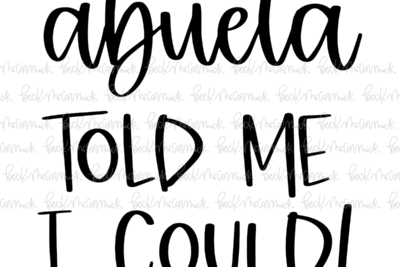 abuela
TOLD ME
I COULD!